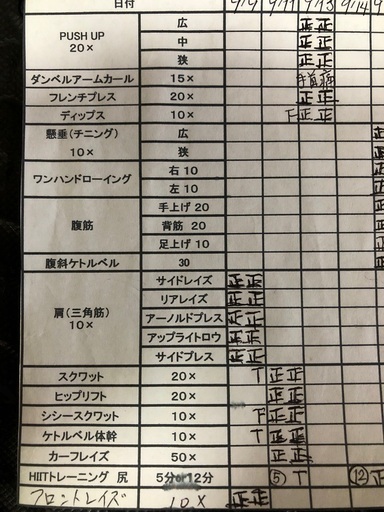 日付 9/9 9/11 9/13 9/14
PUSH UP 20× 広 正 正
中 正 正
狭 正 正
ダンベルアームカール 15×
フレンチプレス 20× 正 正
ディップス 10× F 正 正
懸垂(チニング) 10× 広 正
狭 正
ワンハンドローイング 右 10 正
左 10 正
腹筋 手上げ 20 正
背筋 20 正
足上げ 10 正
腹斜ケトルベル 30 正
肩(三角筋) 10× サイドレイズ 正 正
リアレイズ 正 正
アーノルドプレス 正 正
アップライトロウ 正 正
サイドプレス 正 正
スクワット 20× T 正 正
ヒップリフト 20× 正 正
シシースクワット 10× F 正 正
ケトルベル体幹 10× T 正 正
カーフレイズ 50× 正 正
HIITトレーニング 尻 5分or12分 ⑤ T ⑫ 正
フロントレイズ 10× 正 正